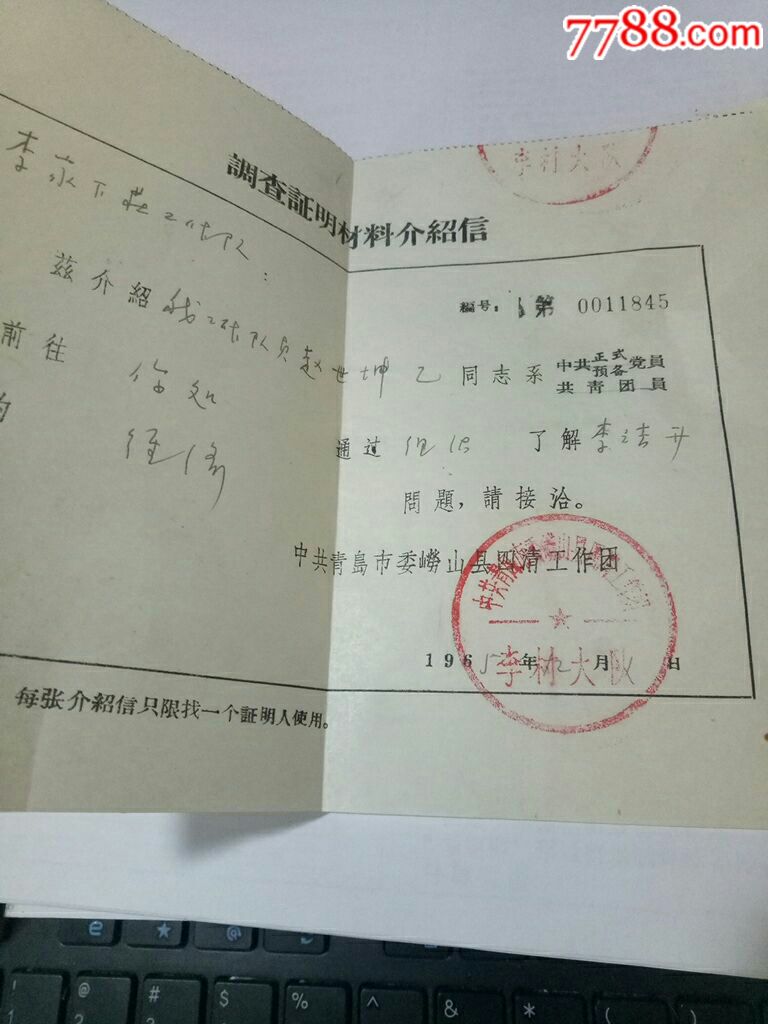 7788.com
李村大队
調查証明材料介紹信
李家下莊工作队:
編号: 第 0011845
兹介紹我工作队员赵世坤乙同志系中共正式預备党員共青团員
前往 你处 通过组织 了解李
的 問題,請接洽。
中共青島市委嶗山县四清工作团
1965年12月 日
李村大队
每张介紹信只限找一个証明人使用。
e
@
! @ # $ % ^ & * (
1 2 3